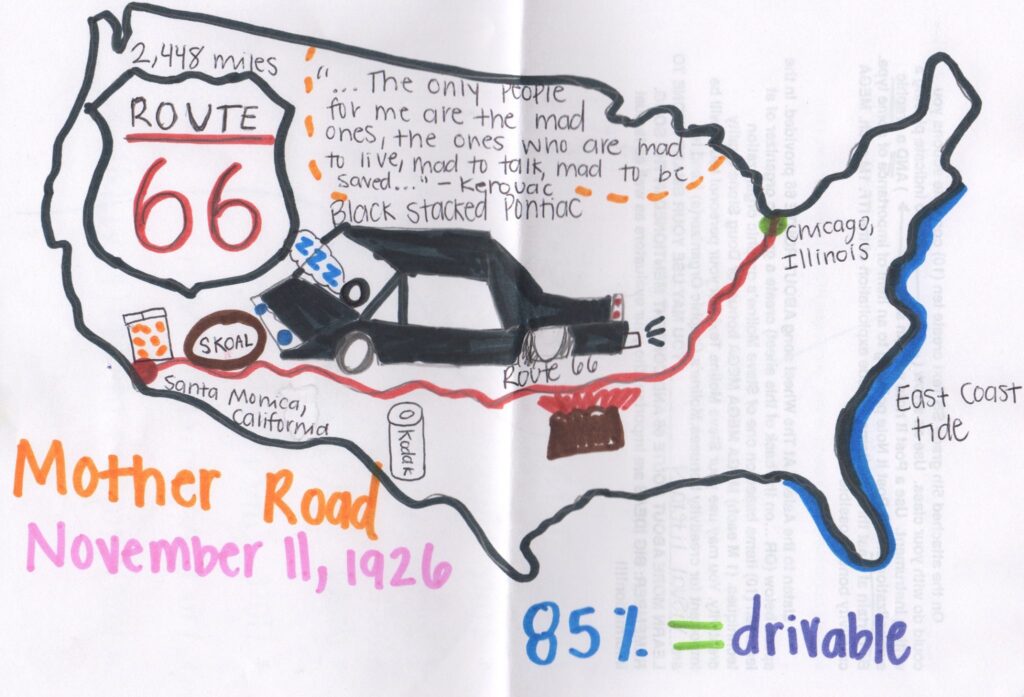 2,448 miles
ROUTE
66
"... The only people
for me are the mad
ones, the ones who are mad
to live, mad to talk, mad to be
saved..." - Kerouac
Black Stacked Pontiac
ZZZ
Chicago,
Illinois
SKOAL
Route 66
Santa Monica,
California
Kodak
East Coast
tide
Mother Road
November 11, 1926
85% = drivable